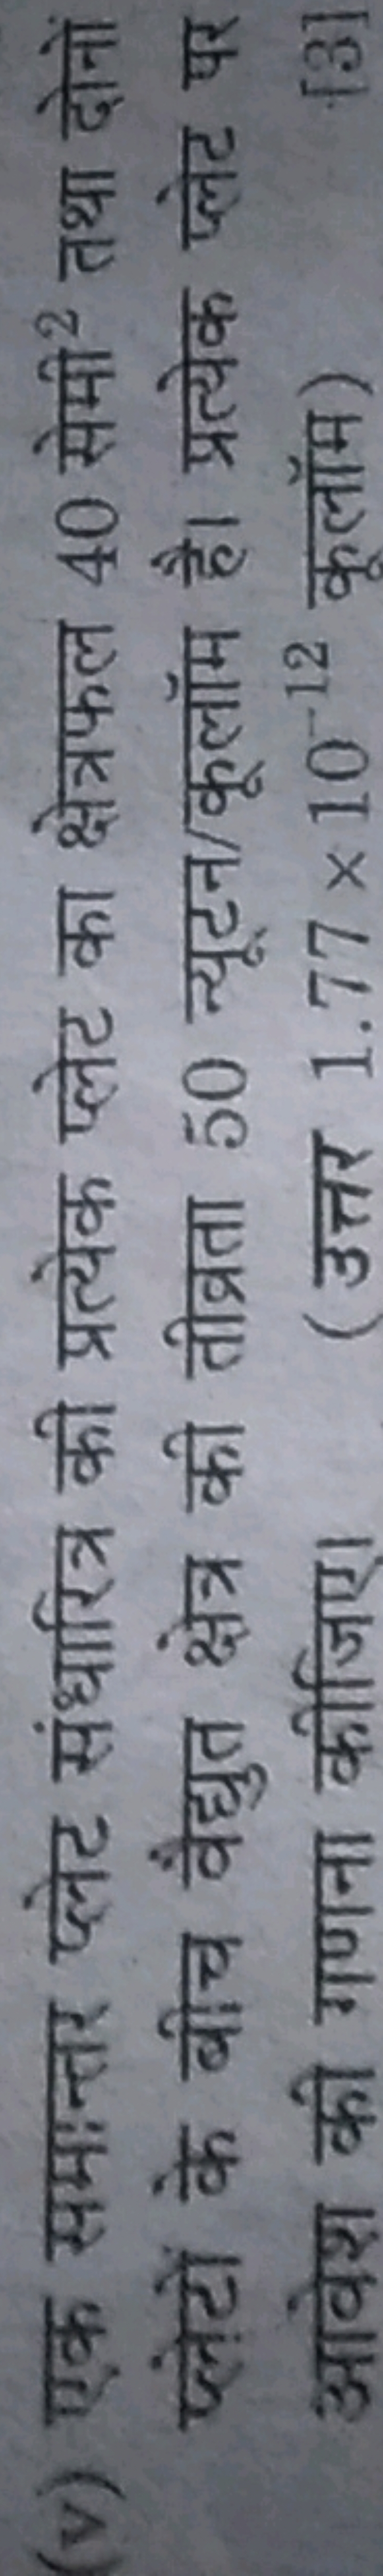 (v) एक समान्तर प्लेट संधारित्र की प्रत्येक प्लेट का क्षेत्रफल 40 सेमी² तथा दोनों
प्लेटों के बीच वैद्युत क्षेत्र की तीव्रता 50 न्यूटन/कूलॉम है। प्रत्येक प्लेट पर
आवेश की गणना कीजिए। (उत्तर 1.77 × 10⁻¹² कूलॉम) [3]